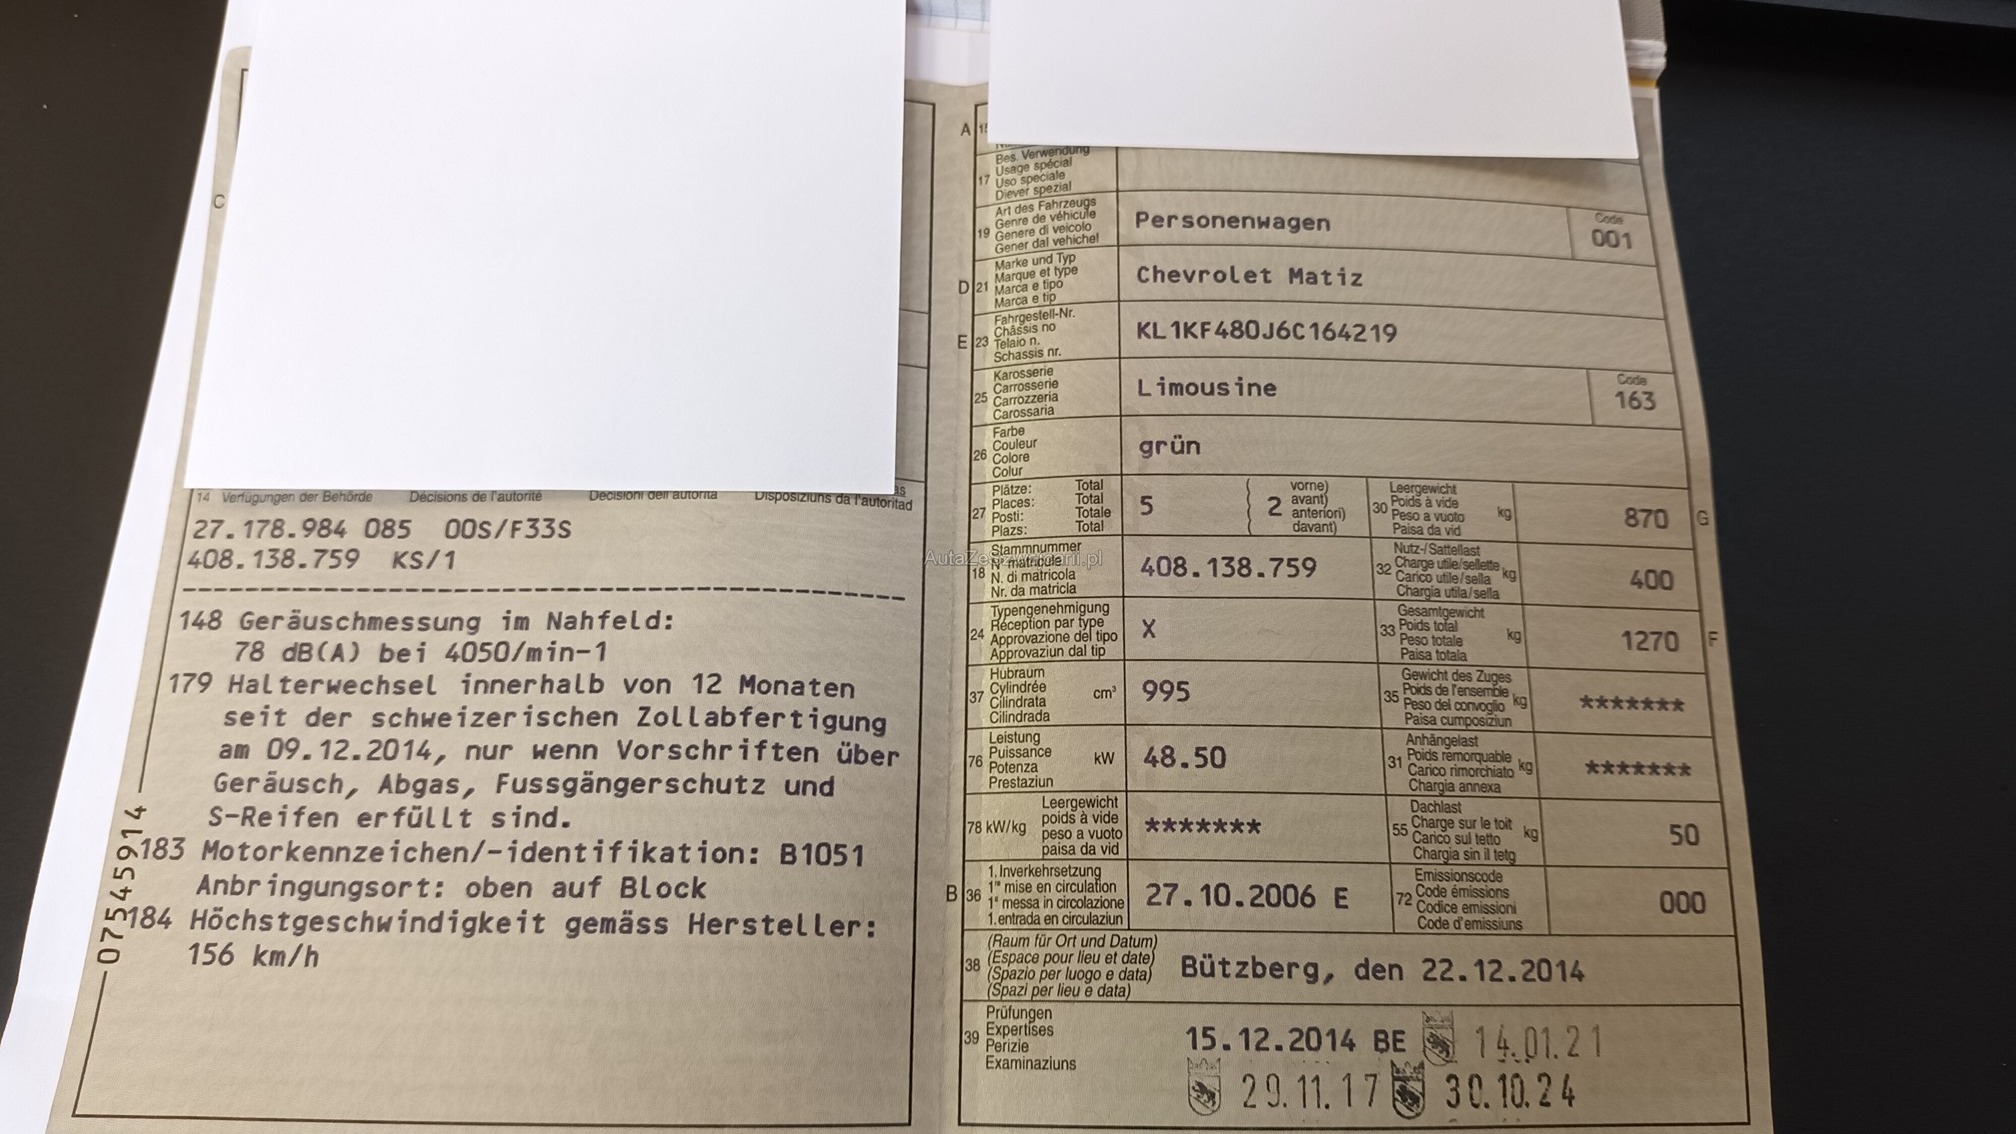 C
14 Verfügungen der Behörde Décisions de l'autorité Decisioni dell'autorità Disposiziuns da l'autoritad
27.178.984 085 00S/F33S
408.138.759 KS/1
148 Geräuschmessung im Nahfeld:
78 dB(A) bei 4050/min-1
179 Halterwechsel innerhalb von 12 Monaten
seit der schweizerischen Zollabfertigung
am 09.12.2014, nur wenn Vorschriften über
Geräusch, Abgas, Fussgängerschutz und
S-Reifen erfüllt sind.
183 Motorkennzeichen/-identifikation: B1051
Anbringungsort: oben auf Block
184 Höchstgeschwindigkeit gemäss Hersteller:
156 km/h
07545914
A
17 Bes. Verwendung
Usage spécial
Uso speciale
Diever spezial
19 Art des Fahrzeugs
Genre de véhicule
Genere di veicolo
Gener dal vehichel
Personenwagen
Code
001
D 21 Marke und Typ
Marque et type
Marca e tipo
Marca e tip
Chevrolet Matiz
E 23 Fahrgestell-Nr.
Châssis no
Telaio n.
Schassis nr.
KL1KF480J6C164219
25 Karosserie
Carrosserie
Carrozzeria
Carossaria
Limousine
Code
163
26 Farbe
Couleur
Colore
Colur
grün
27 Plätze: Total
Places: Total
Posti: Totale
Plazs: Total
5
2
vorne)
avant)
anteriori)
davant)
30 Leergewicht
Poids à vide
Peso a vuoto
Paisa da vid
kg
870 G
18 Stammnummer
N. matricule
N. di matricola
Nr. da matricla
408.138.759
32 Nutz-/Sattellast
Charge utile/sellette
Carico utile/sella
Chargia utila/sella
kg
400
24 Typengenehmigung
Réception par type
Approvazione del tipo
Approvaziun dal tip
X
33 Gesamtgewicht
Poids total
Peso totale
Paisa totala
kg
1270 F
37 Hubraum
Cylindrée
Cilindrata
Cilindrada
cm³
995
35 Gewicht des Zuges
Poids de l'ensemble
Peso del convoglio
Paisa cumposiziun
kg
*******
76 Leistung
Puissance
Potenza
Prestaziun
kW
48.50
31 Anhängelast
Poids remorquable
Carico rimorchiato
Chargia annexa
kg
*******
78 kW/kg
Leergewicht
poids à vide
peso a vuoto
paisa da vid
*******
55 Dachlast
Charge sur le toit
Carico sul tetto
Chargia sin il tetg
kg
50
B 36 1. Inverkehrsetzung
1re mise en circulation
1a messa in circolazione
1. entrada en circulaziun
27.10.2006 E
72 Emissionscode
Code émissions
Codice emissioni
Code d'emissiuns
000
38 (Raum für Ort und Datum)
(Espace pour lieu et date)
(Spazio per luogo e data)
(Spazi per lieu e data)
Bützberg, den 22.12.2014
39 Prüfungen
Expertises
Perizie
Examinaziuns
15.12.2014 BE 14.01.21
29.11.17 30.10.24
AutaZeSzwajcarii.pl